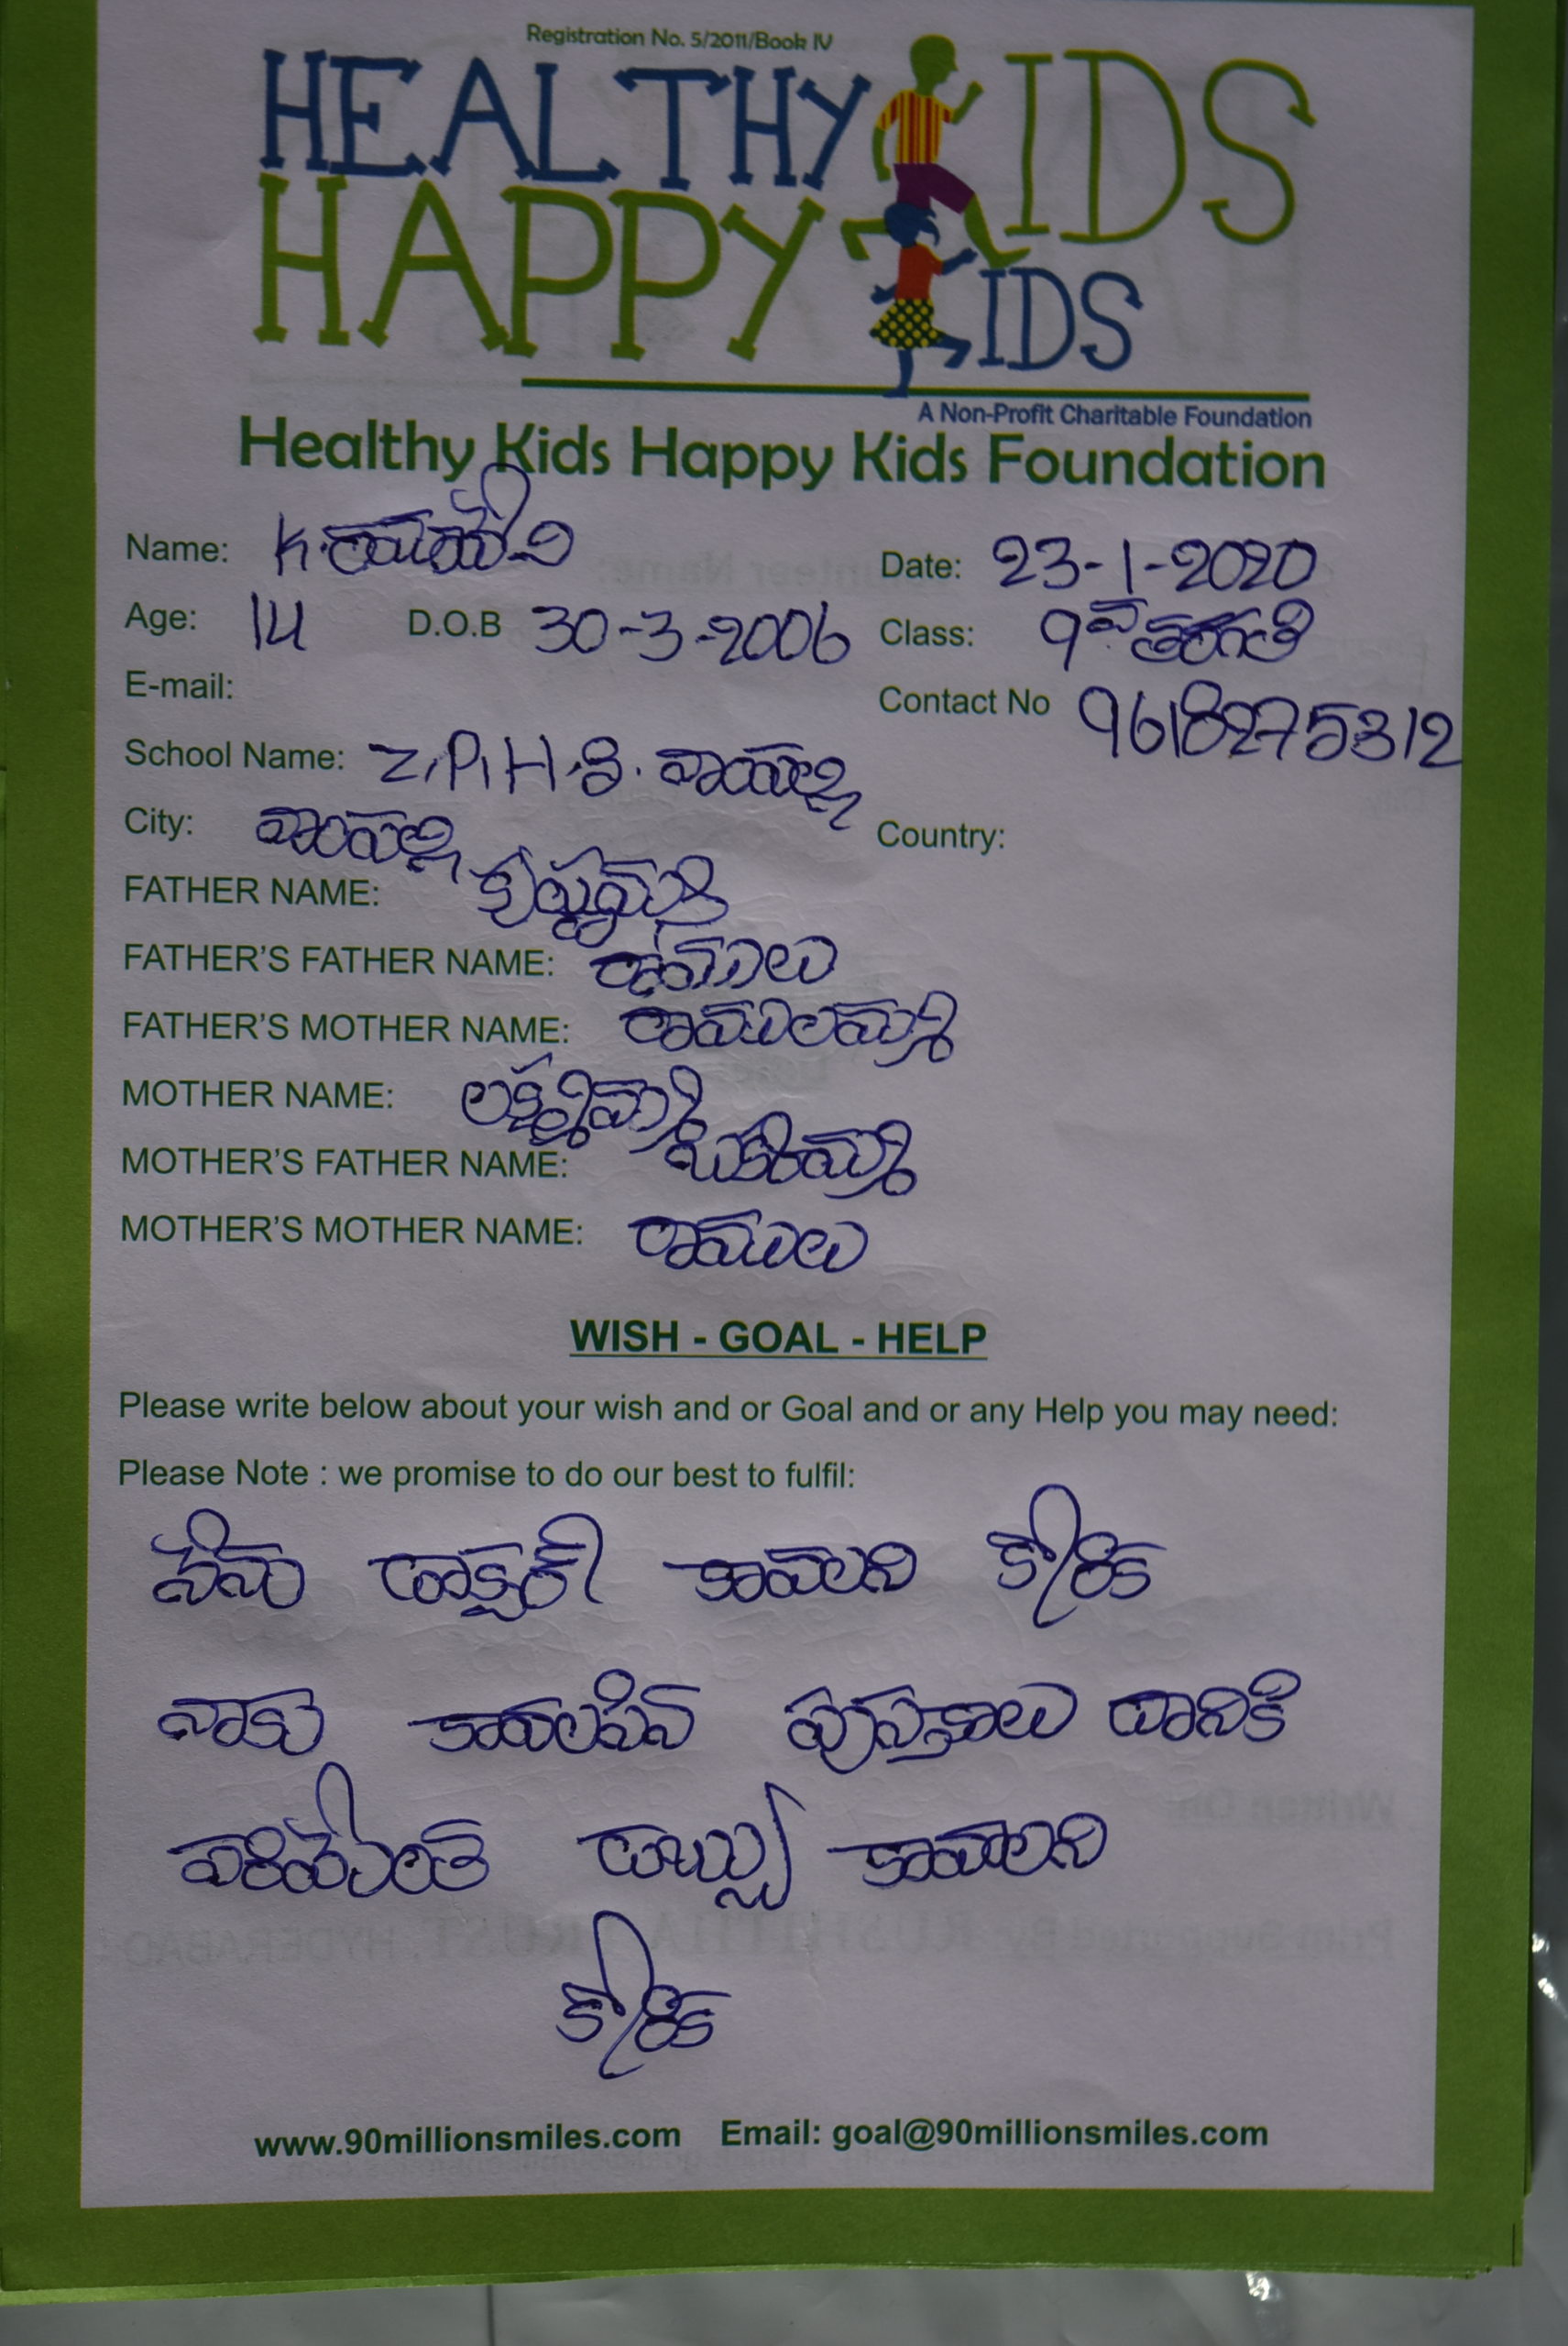 Registration No. 5/2011/Book IV
HEALTHY KIDS
HAPPY KIDS
A Non-Profit Charitable Foundation
Healthy Kids Happy Kids Foundation
Name: K.
Date: 23-1-2020
Age: 14 D.O.B 30-3-2006
Class: 9వ తరగతి
E-mail:
Contact No 9618275312
School Name: Z.P.H.S.
City:
Country:
FATHER NAME:
FATHER'S FATHER NAME: రాములు
FATHER'S MOTHER NAME: రాములమ్మ
MOTHER NAME: లక్ష్మమ్మ
MOTHER'S FATHER NAME:
MOTHER'S MOTHER NAME: రాములు
WISH - GOAL - HELP
Please write below about your wish and or Goal and or any Help you may need:
Please Note : we promise to do our best to fulfil:
నేను డాక్టర్ కావలని కోరిక
నాకు కావలసిన పుస్తకాలు దానికి
డబ్బులు కావాలని
కోరిక
www.90millionsmiles.com Email: goal@90millionsmiles.com